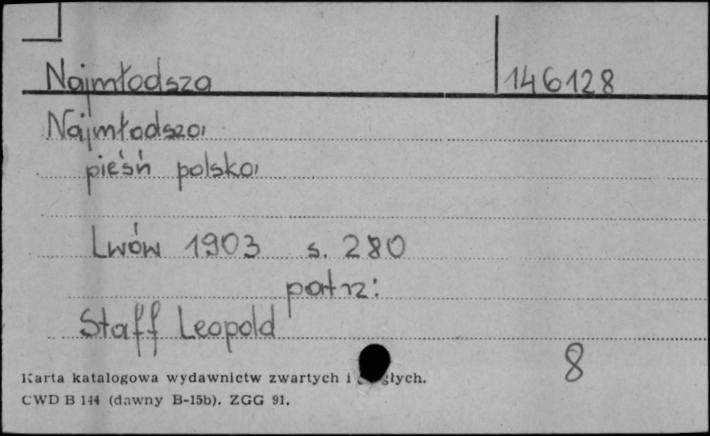 Najmłodsza 146128
Najmłodsza
pieśń polska
Lwów 1903 s. 280
patrz:
Staff Leopold
8
Karta katalogowa wydawnictw zwartych i
CWD B 144 (dawny B-15b). ZGG 91.